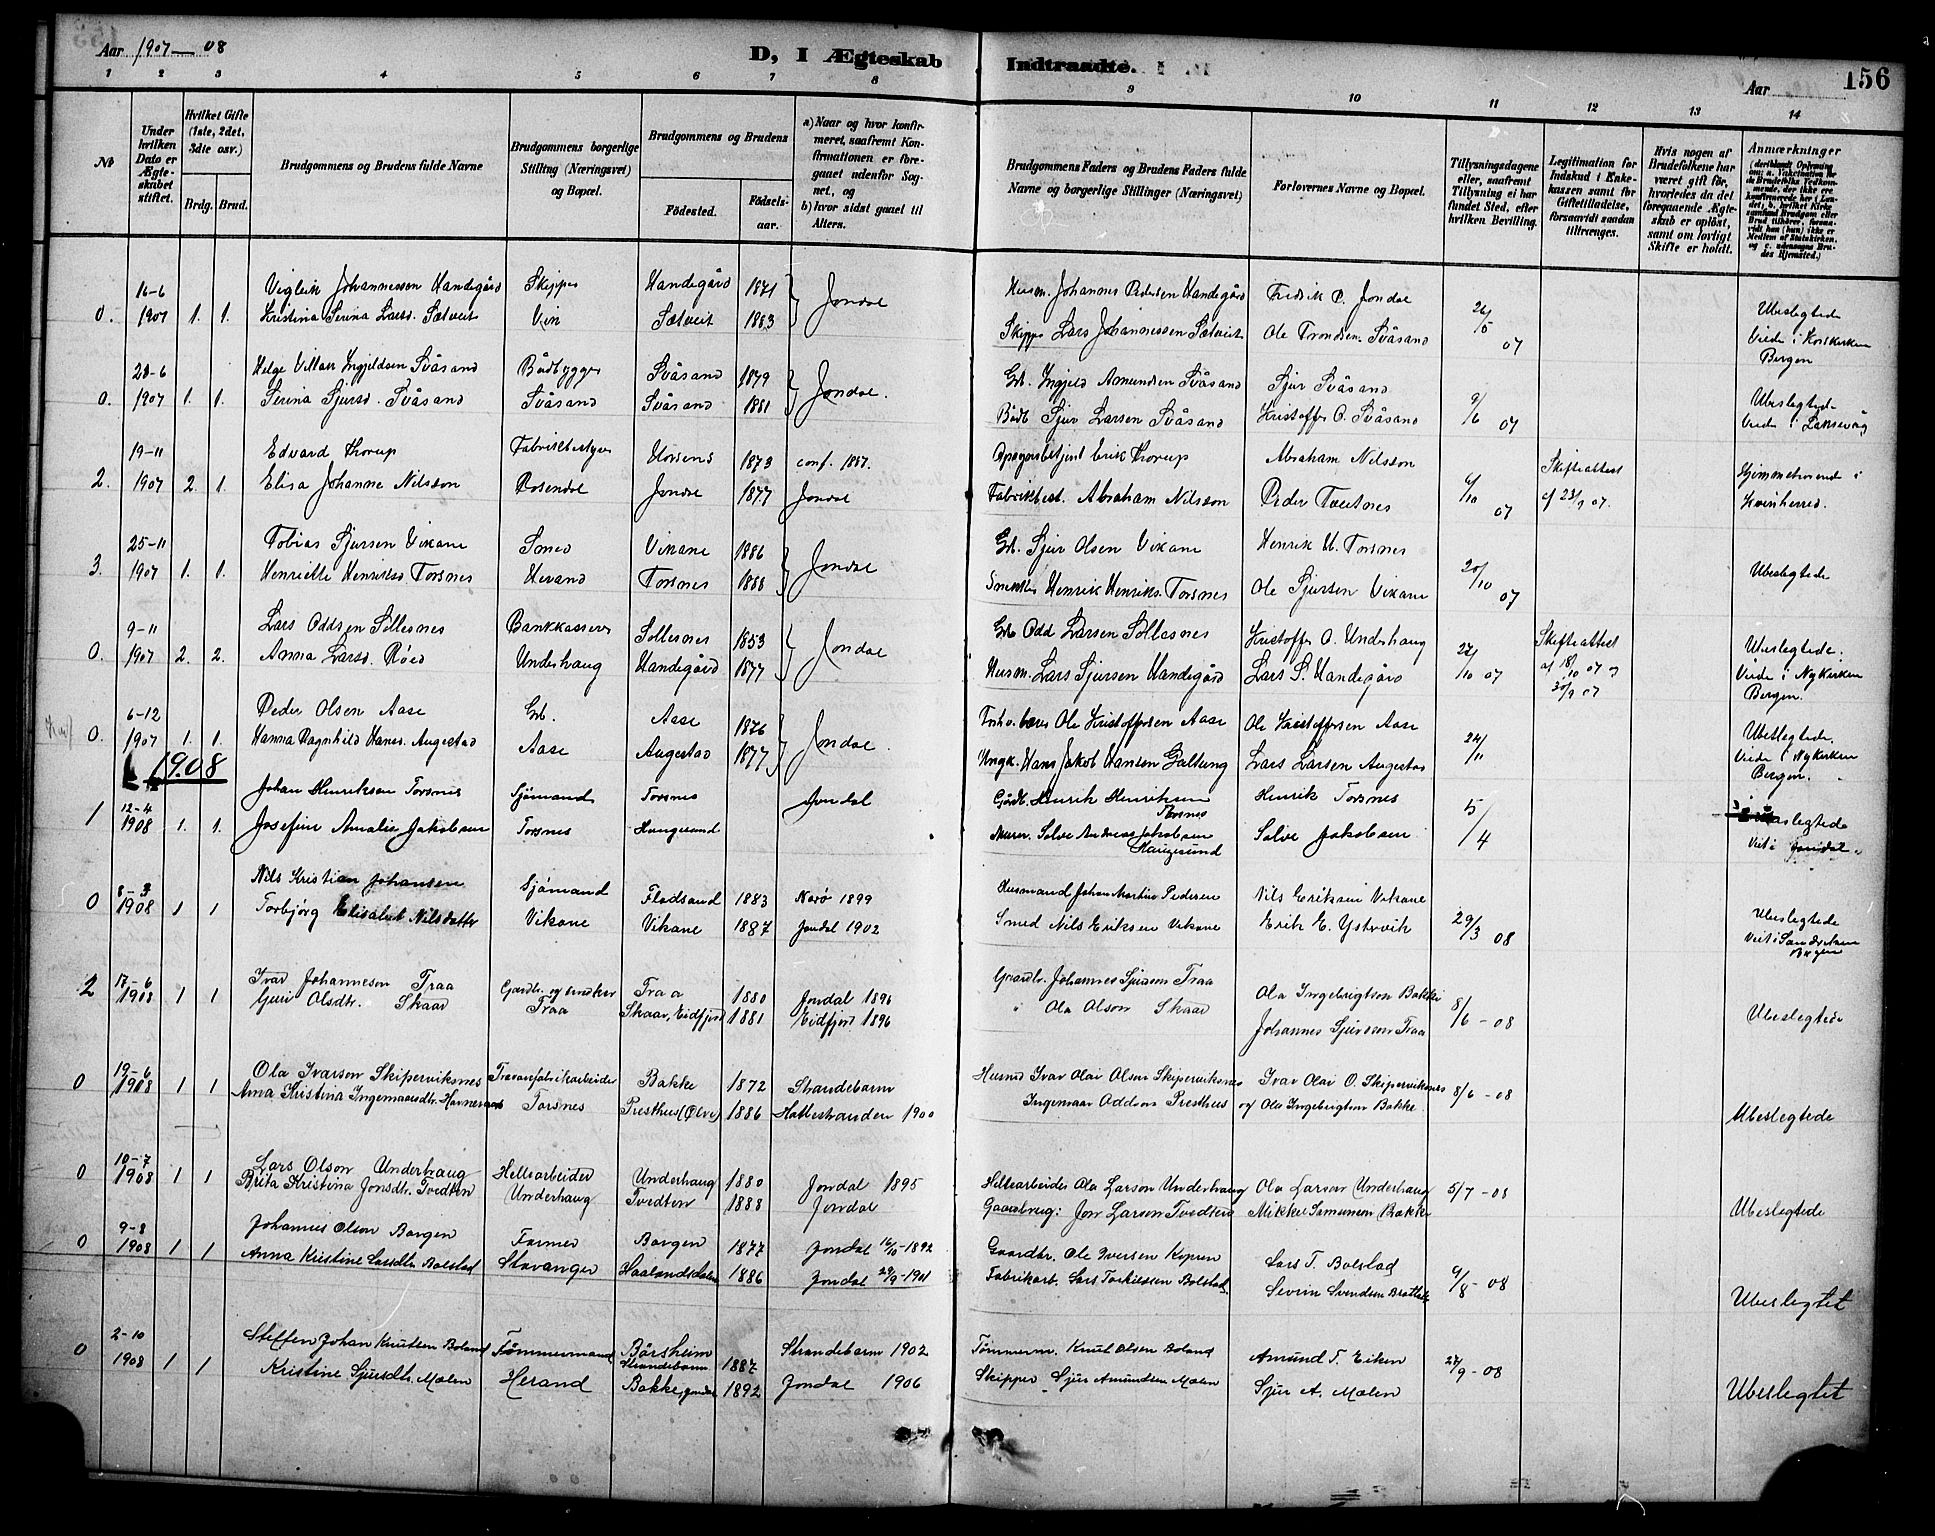 Aar 1907 — 08
D, I Ægteskab Indtraadte.
Aar
156
1 2 3 4 5 6 7 8 9 10 11 12 13 14
No
Under hvilken Dato er Ægteskabet stiftet.
Hvilket Gifte (1ste, 2det, 3die osv.)
Brdg. Brud.
Brudgommens og Brudens fulde Navne
Brudgommens borgerlige Stilling (Næringsvei) og Bopæl.
Brudgommens og Brudens
Fødested. Fødselsaar.
a) Naar og hvor konfirmeret, saafremt Konfirmationen er foregaaet udenfor Sognet, og
b) hvor sidst gaaet til Alters.
Brudgommens Faders og Brudens Faders fulde Navne og borgerlige Stillinger (Næringsvei)
Forlovernes Navne og Bopæl.
Tillysningsdagene eller, saafremt Tillysning ei har fundet Sted, efter hvilken Bevilling.
Legitimation for Indskud i Enkekassen samt for Giftetilladelse, forsaavidt saadan tiltrænges.
Hvis nogen af Brudefolkene har været gift før, hvorledes da det foregaaende Ægteskab er opløst, samt om lovligt Skifte er holdt.
Anmærkninger
16-6 Viglik Johannessen Handegård Skipper Handegård 1871 Jondal Husm. Johannes Pedersen Handegård Fredrik P. Jondal 26/5 07 Ubeslegtede
0. 1907 1. 1. Kristina Serina Larsd. Sætveit Vik Sætveit 1883 Skipper Lars Johannessen Sætveit Ole Trondsen Svåsand Viede i Korskirken Bergen
23-6 Helge Villars Ingjeldsen Svåsand Bådbygger Svåsand 1879 Jondal. Gb. Ingjeld Amundsen Svåsand Sjur Svåsand 9/6 07 Ubeslegtede
0. 1907 1. 1. Serina Sjursd. Svåsand Svåsand Svåsand 1881 Bådb. Sjur Larsen Svåsand Kristoffer O. Svåsand Viede i Laksevåg
19-11 Edvard Thorup Fabrikbestyrer Horsens 1873 conf. 1887. Erik Thorup Abraham Nilsson 6/10 07 Skifteattest af 23/9 07. Hjemmehørende i
2. 1907 2. 1. Elisa Johanne Nilsson Rosendal Jondal 1877 Jondal Fabrikbest. Abraham Nilsson Peder Tveitnes Kvinherred.
25-11 Tobias Sjursen Vikane Smed Vikane 1886 Jondal Gb. Sjur Olsen Vikane Henrik H. Torsnes 20/10 07 Ubeslegtede
3. 1907 1. 1. Henriette Henriksd. Torsnes Herand Torsnes 1888 Henrik Henriks. Torsnes Ole Sjursen Vikane
9-11 Lars Oddsen Sollesnes Bankkasserer Sollesnes 1853 Jondal Gb. Odd Larsen Sollesnes Kristoffer O. Underhaug 27/10 07 Skifteattest af 18/10 07 og 30/9 07 Ubeslegtede.
0. 1907 2. 2. Anna Larsd. Røed Underhaug Handegård 1877 Husm. Lars Sjursen Handegård Lars S. Handegård Viede i Nykirken Bergen.
6-12 Peder Olsen Aase Gb. Aase 1876 Jondal. Ole Kristoffersen Aase Ole Kristoffersen Aase 24/11 Ubeslegtede.
0. 1907 1. 1. Hanna Ragnhild Hansd. Augestad Aase Augestad 1877 Ungk. Hans Jakob Hansen Galtung Lars Larsen Augestad Viede i Nykirken Bergen.
1908
12-4 Johan Henriksen Torsnes Sjömand Torsnes Jondal Gårdb. Henrik Henriksen Torsnes Henrik Torsnes 5/4 Ubeslegtede
1 1908 1. 1. Josefine Amalie Jakobsen Torsnes Haugesund Murer. Salve Andreas Jakobsen Haugesund Salve Jakobsen Viet i Jondal.
8-3 Nils Kristian Johansen Sjömand Flodsand 1883 Norö 1899 Husmand Johan Martin Pedersen Nils Eriksen Vikane 29/3 08 Ubeslegtede
0 1908 1 1 Torbjörg Elisabet Nilsdatter Vikane Vikane 1887 Jondal 1902 Smed Nils Eriksen Vikane Erik E. Ystevik Viet i Sandviken Bergen
17-6 Ivar Johanneson Traa Gardbr. og snedker Traa 1880 Jondal 1896 Gaardbr. Johannes Sjurson Traa Ola Ingebrigtson Bakke 8/6 - 08 Ubeslegtede
2 1908 1 1 Guri Olsdtr. Skaar Traa Skaar, Eidfjord 1881 Eidfjord 1896 " Ola Olson Skaar Johannes Sjurson Traa
19-6 Ola Ivarson Skiperviksnes Travarefabrikarbeider Bakke 1872 Strandebarm Husmd Ivar Olai Olson Skiperviksnes Ivar Olai O. Skiperviksnes 8/6 - 08
0 1908 1 1 Anna Kristina Ingemansdtr. Torsnes Presthus (Ølve) 1886 Hattestranden 1900 Ingemaar Oddson Presthus og Ola Ingebrigtson Bakke Ubeslegtede
10-7 Lars Olson Underhaug Hellearbeider Underhaug 1880 Jondal 1895 Hellearbeider Ola Larson Underhaug Ola Larson Underhaug 5/7 - 08
0 1908 1 1 Brita Kristina Jonsdtr. Tvedten Underhaug Tvedten 1888 Jondal Gaardbrug: Jon Larson Tvedten Mikkel Samunson Bakke Ubeslegtede
9-8 Johannes Olson Borgen Farmer Borgen 1877 Jondal 16/10-1892 Gaardbr. Ole Iversen Kopren Lars T. Bolstad 9/8 - 08
0 1908 1 1 Anna Kristine Larsdtr. Bolstad Stavanger Haalandsdalen 1886 Jondal 29/9-1901 Fabrikarb. Lars Torkilssen Bolstad Severin Svendsen Ubeslegtet
2-10 Steffen Johan Knutsen Boland Tømmermand Børsheim Strandebarm 1887 Strandebarm 1902 Tømmerm. Knut Olsen Boland Amund T. Eiken 27/9 - 08
0 1908 1 1 Kristine Sjursdtr. Mælen Herand Bakke, Jondal 1892 Jondal 1906 Skipper Sjur Amundsen Mælen Sjur A. Mælen Ubeslegtet